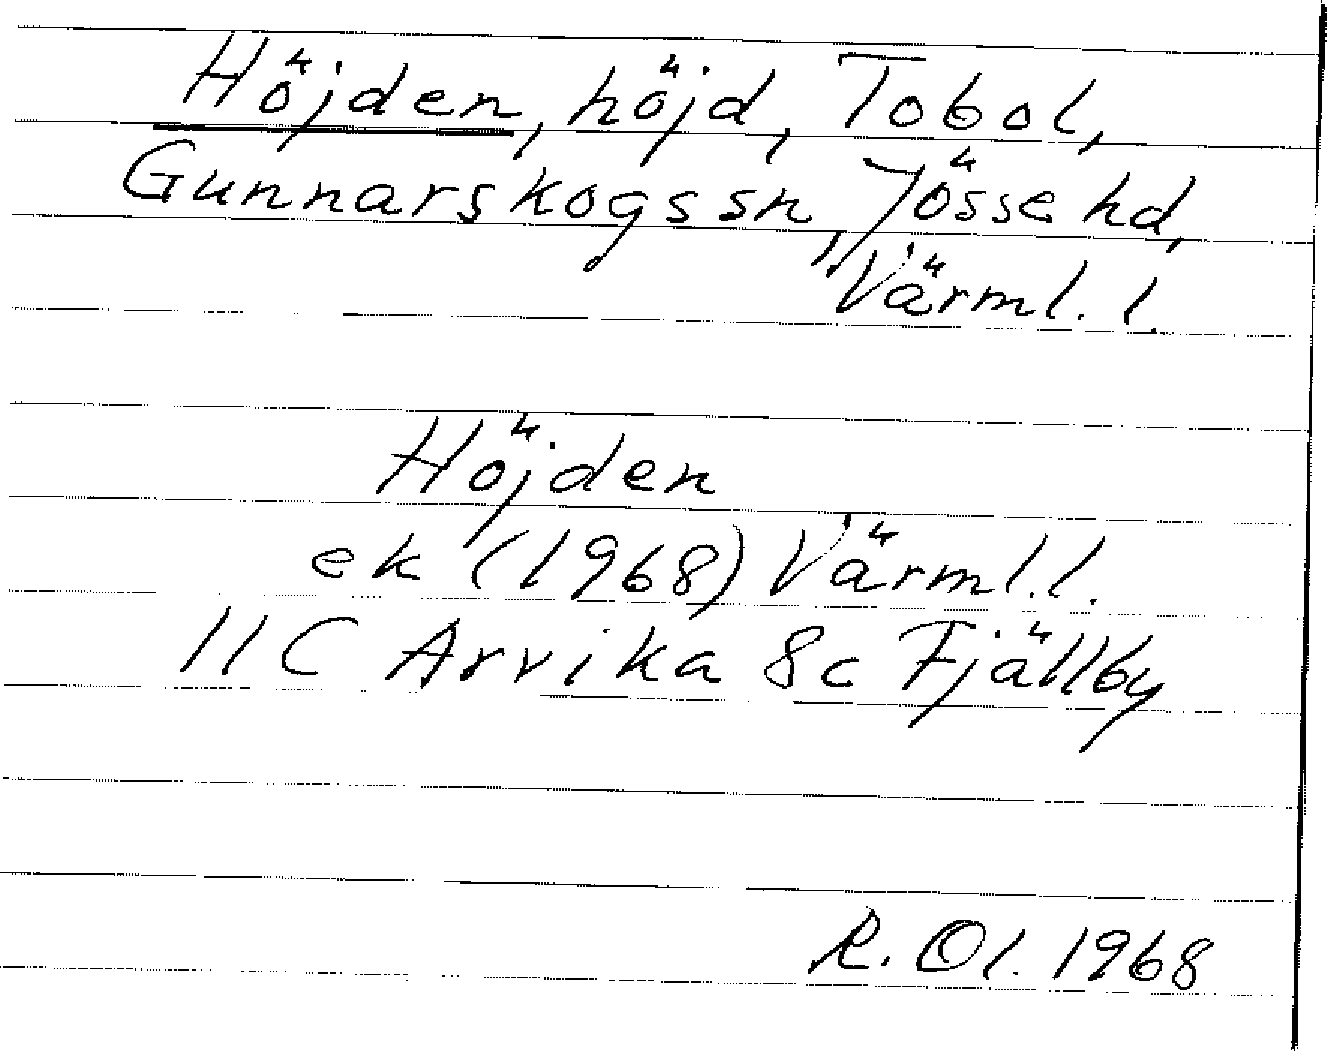 Höjden, höjd, Tobol,
Gunnarskogs sn, Jösse hd,
Värml. l.
Höjden
ek (1968) Värml. l.
11C Arvika 8c Fjällby
R. Ol. 1968